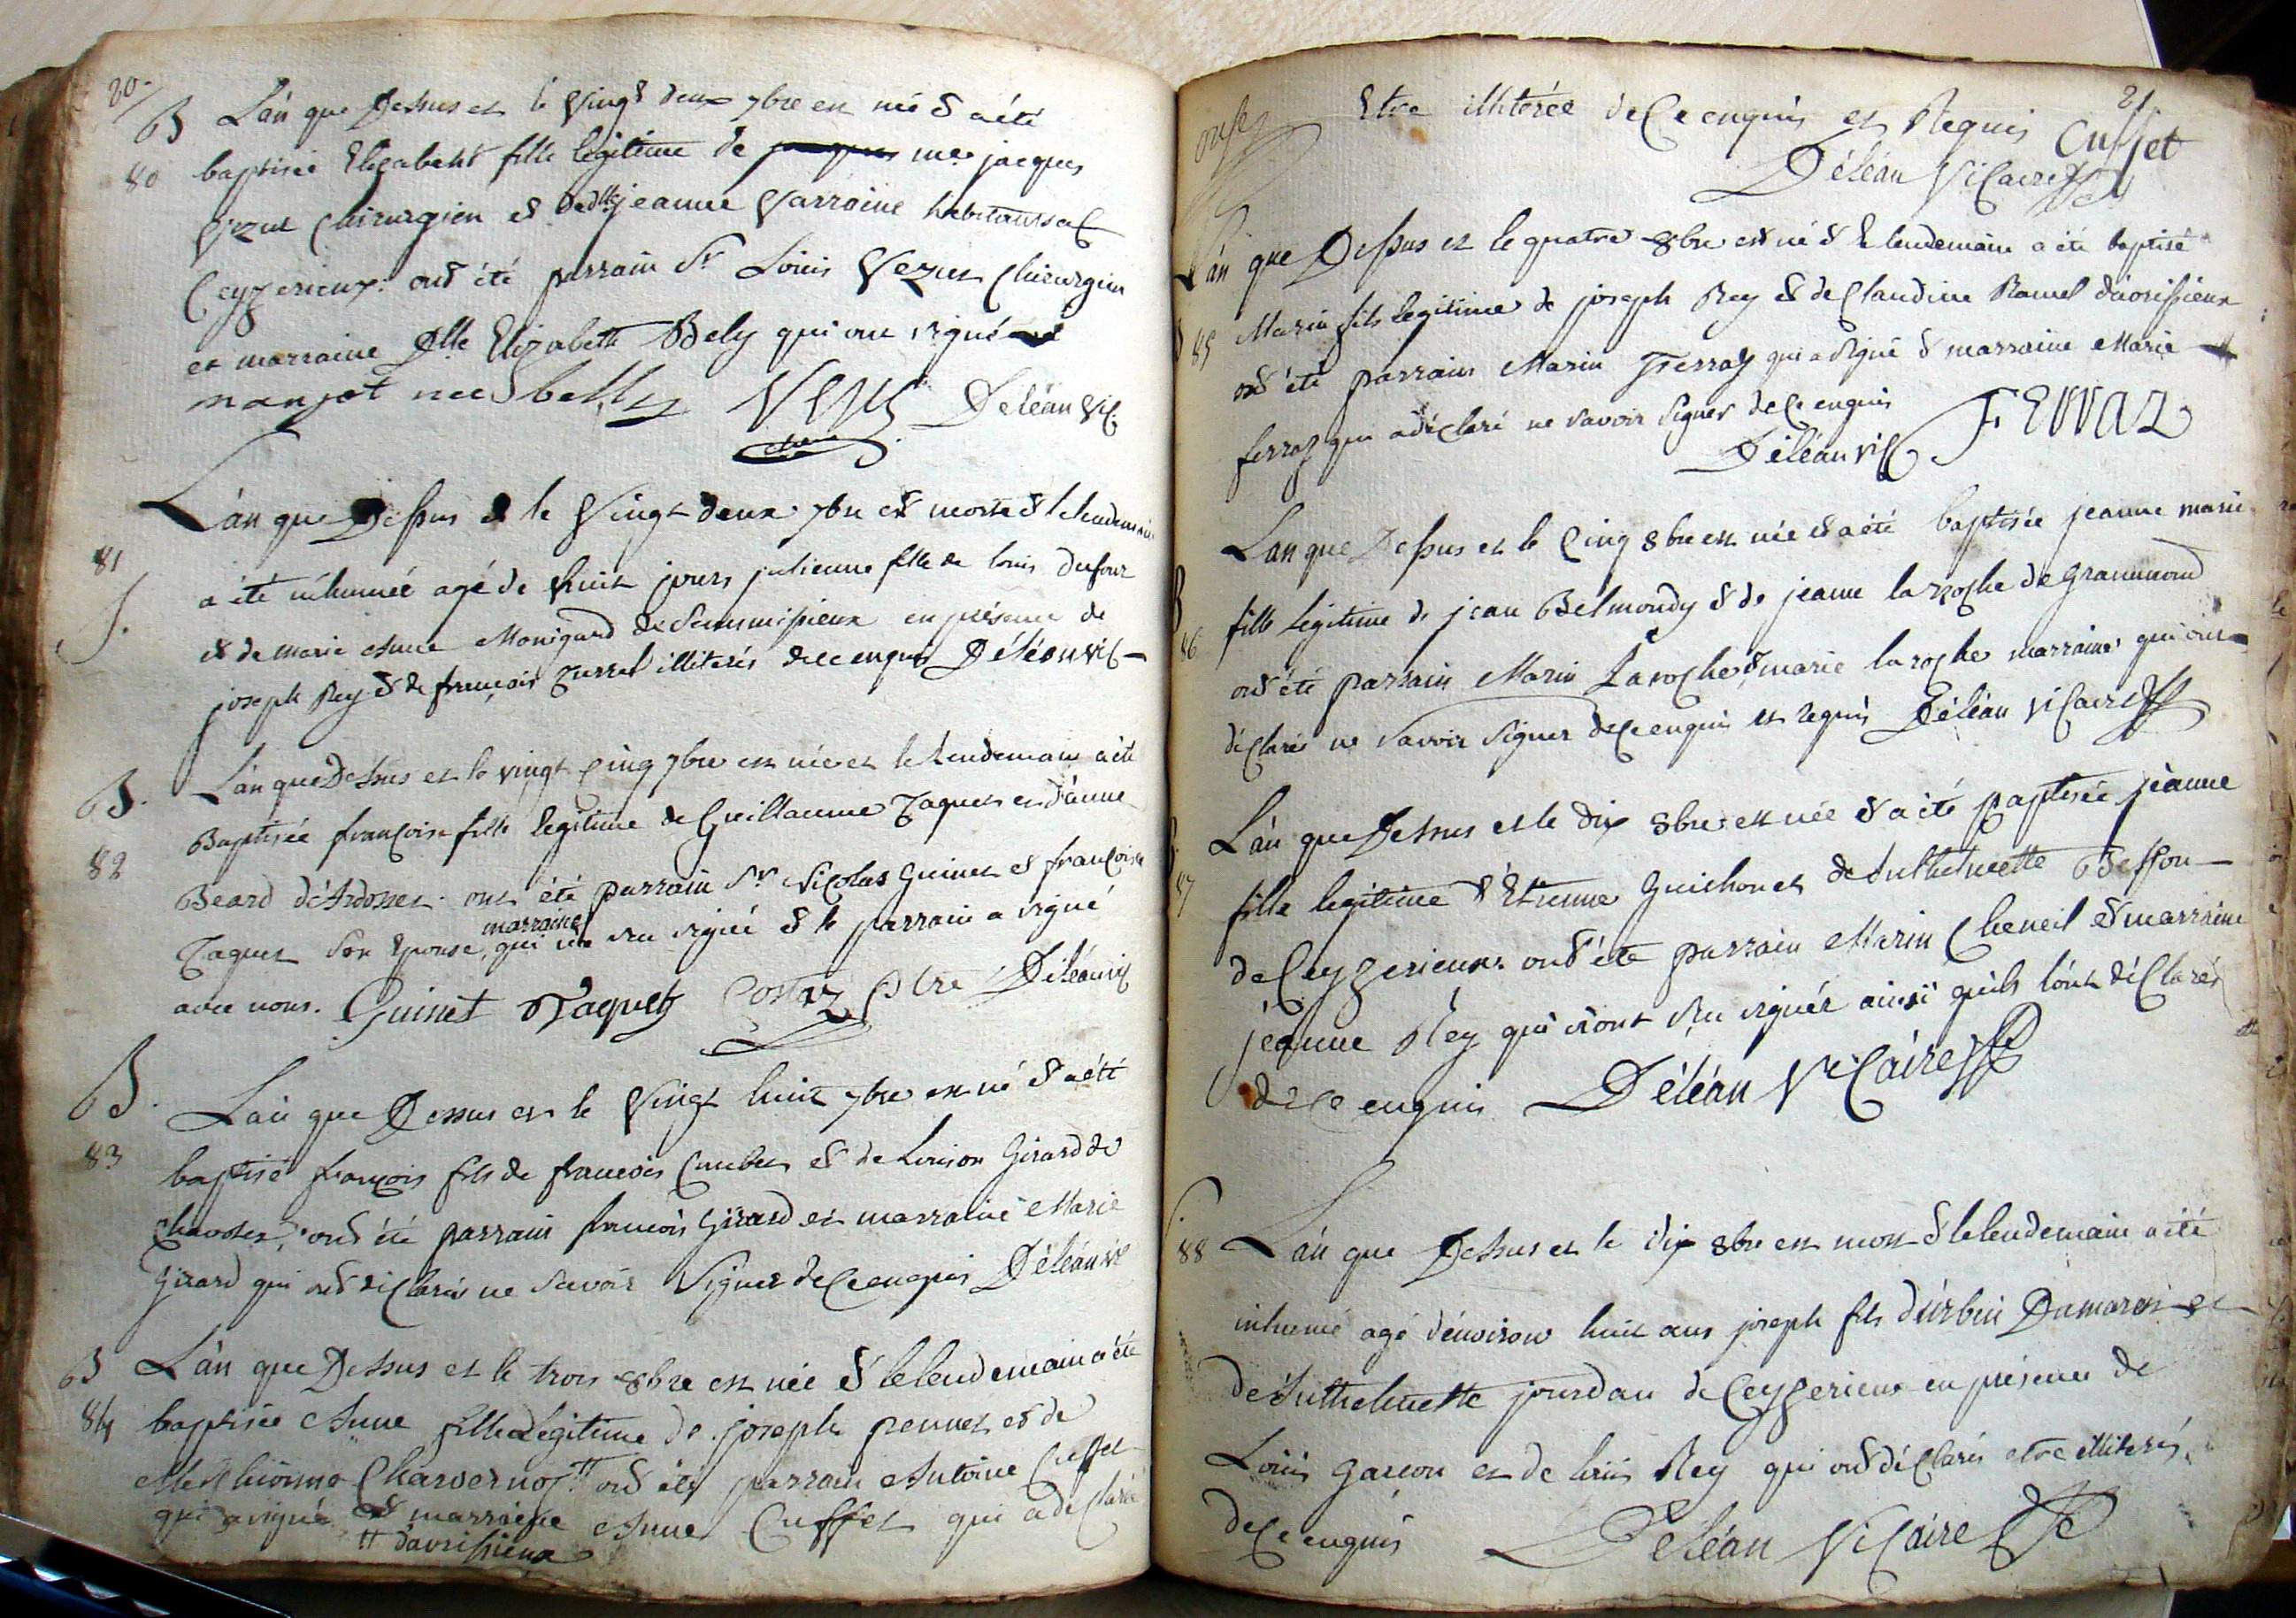 20.
B L'an que Dessus et le Vingt deux 7bre est né & a été
80 baptisée Elizabeht fille légitime de me jacques
Vezut Chirurgien et de dlle jeanne Varraine habitants a
Ceyzerieux. ont été parrain Sr Loüis Vezut Chirurgien
et marraine Dlle Elizabeth Bely qui ont signé
manjot née belly Vezut Déléan Vic.
L'an que Dessus & le Vingt deux 7bre est morte & le lendemain
81
a été inhumée agé de huit jours julienne fille de louis dufour
S. & de marie Anne Monigard de Senmissieux en présence de
joseph Rey & de françois illiterés de ce enquis Déléan vic
B. L'an que Dessus et le vingt cinq 7bre est née et le lendemain a été
Baptisée françoise fille legitime de Guillaume Taquet et d'anne
82
Beard d'Ardosset. ont été parrain Sr Nicolas Guinet & françoise
marraine
Taquet son Epouse, qui n'a su signé & le parrain a signé
avec nous. Guinet Taquet Costaz Déléan vic
B. L'an que Dessus et le Vingt huit 7bre est né & a été
83
baptisé françois fils de françois Cuubet & de Loüison Girard de
Chavoley, ont été parrain françois Girard et marraine Marie
Girard qui ont déclarés ne Savoir Signer de Ce enquis Déléan vic
B L'an que Dessus et le trois 8bre est née & le lendemain a été
84 baptisée Anne fille Légitime de joseph pennet et de
Methionne Charvernoz # ont été parrain Antoine Cuffet
qui a signé & marraine Anne Cuffet qui a déclaré
# d'avrissieux
21.
Etre illiterée de Ce enquis et Requis Cuffet
Déléan Vicaire
L'an que Dessus et le quatre 8bre est né & le lendemain a été baptisé
85 Marin fils legitime de joseph Rey & de Claudine Ramel d'avrissieux
ont été parrain Marin Ferraz qui a signé & marraine Marie
ferraz qui a déclaré ne savoir signer de Ce enquis FERRAZ
Déléan vic
L'an que Dessus et le Cinq 8bre est née & a été baptisée jeanne marie
B fille Légitime de jean Belmondy & de jeanne la roche de Grammond
86
ont été parrain Marin Laroche & marie laroche marraine qui ont
déclarés ne Savoir Signer de Ce enquis et requis Déléan Vicaire
L'an que Dessus et le dix 8bre est née & a été baptisée jeanne
87 fille legitime d'Etienne Guichonet de Anthelmette Besson
de Ceyzerieux. ont été parrain Marin Cheneil & marraine
jeanne Rey qui n'ont Su signér ainsi qu'ils l'ont déclarés
de Ce enquis Déléan Vicaire
S.
88 L'an que Dessus et le dix 8bre est mort & le lendemain a été
inhumé agé d'environ huit ans joseph fils d'urbin Damaron et
de Anthelmette jourdan de Ceyzerieux en présence de
Loüis Garçon et de loüis Rey qui ont déclarés etre illiterés.
de Ce enquis Déléan Vicaire